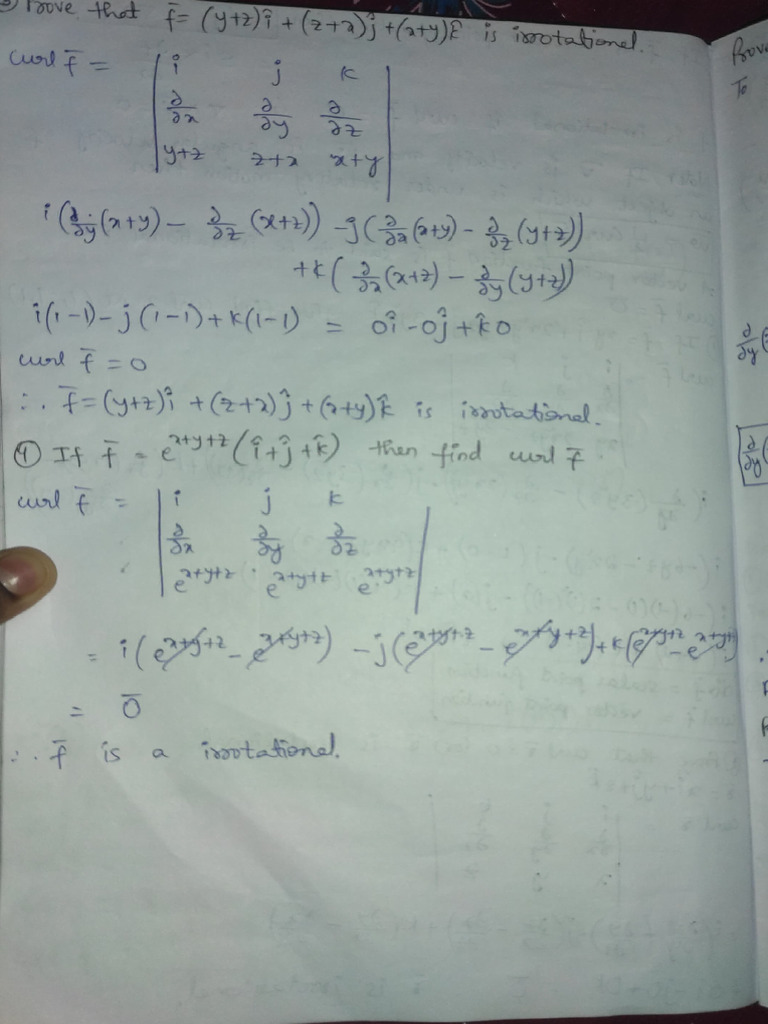 ③ Prove that f̄ = (y+z)î + (z+x)ĵ + (x+y)k̂ is irrotational.
curl f̄ = | i j k |
| ∂/∂x ∂/∂y ∂/∂z |
| y+z z+x x+y |
i(∂/∂y(x+y) − ∂/∂z(x+z)) − j(∂/∂x(x+y) − ∂/∂z(y+z))
+k(∂/∂x(x+z) − ∂/∂y(y+z))
i(1-1) - j(1-1) + k(1-1) = 0î - 0ĵ + k̂0
curl f̄ = 0
∴ f̄ = (y+z)î + (z+x)ĵ + (x+y)k̂ is irrotational.
④ If f̄ = e^{x+y+z}(î+ĵ+k̂) then find curl f̄
curl f̄ = | i j k |
| ∂/∂x ∂/∂y ∂/∂z |
| e^{x+y+z} e^{x+y+z} e^{x+y+z} |
= i(e^{x+y+z} - e^{x+y+z}) - j(e^{x+y+z} - e^{x+y+z}) + k(e^{x+y+z} - e^{x+y+z})
= 0̄
∴ f̄ is a irrotational.
To
∂/∂y(
∂/∂y(